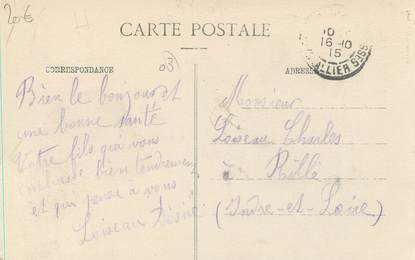 20€
CARTE POSTALE
16-10
15
ALLIER
CORRESPONDANCE
(03)
ADRESSE
Bien le bonjour et
une bonne santé
Votre fils qui vous
embrasse bien tendrement
et qui pense à vous
Loiseau Désiré
Monsieur
Loiseau Charles
à Rillé
(Indre-et-Loire)